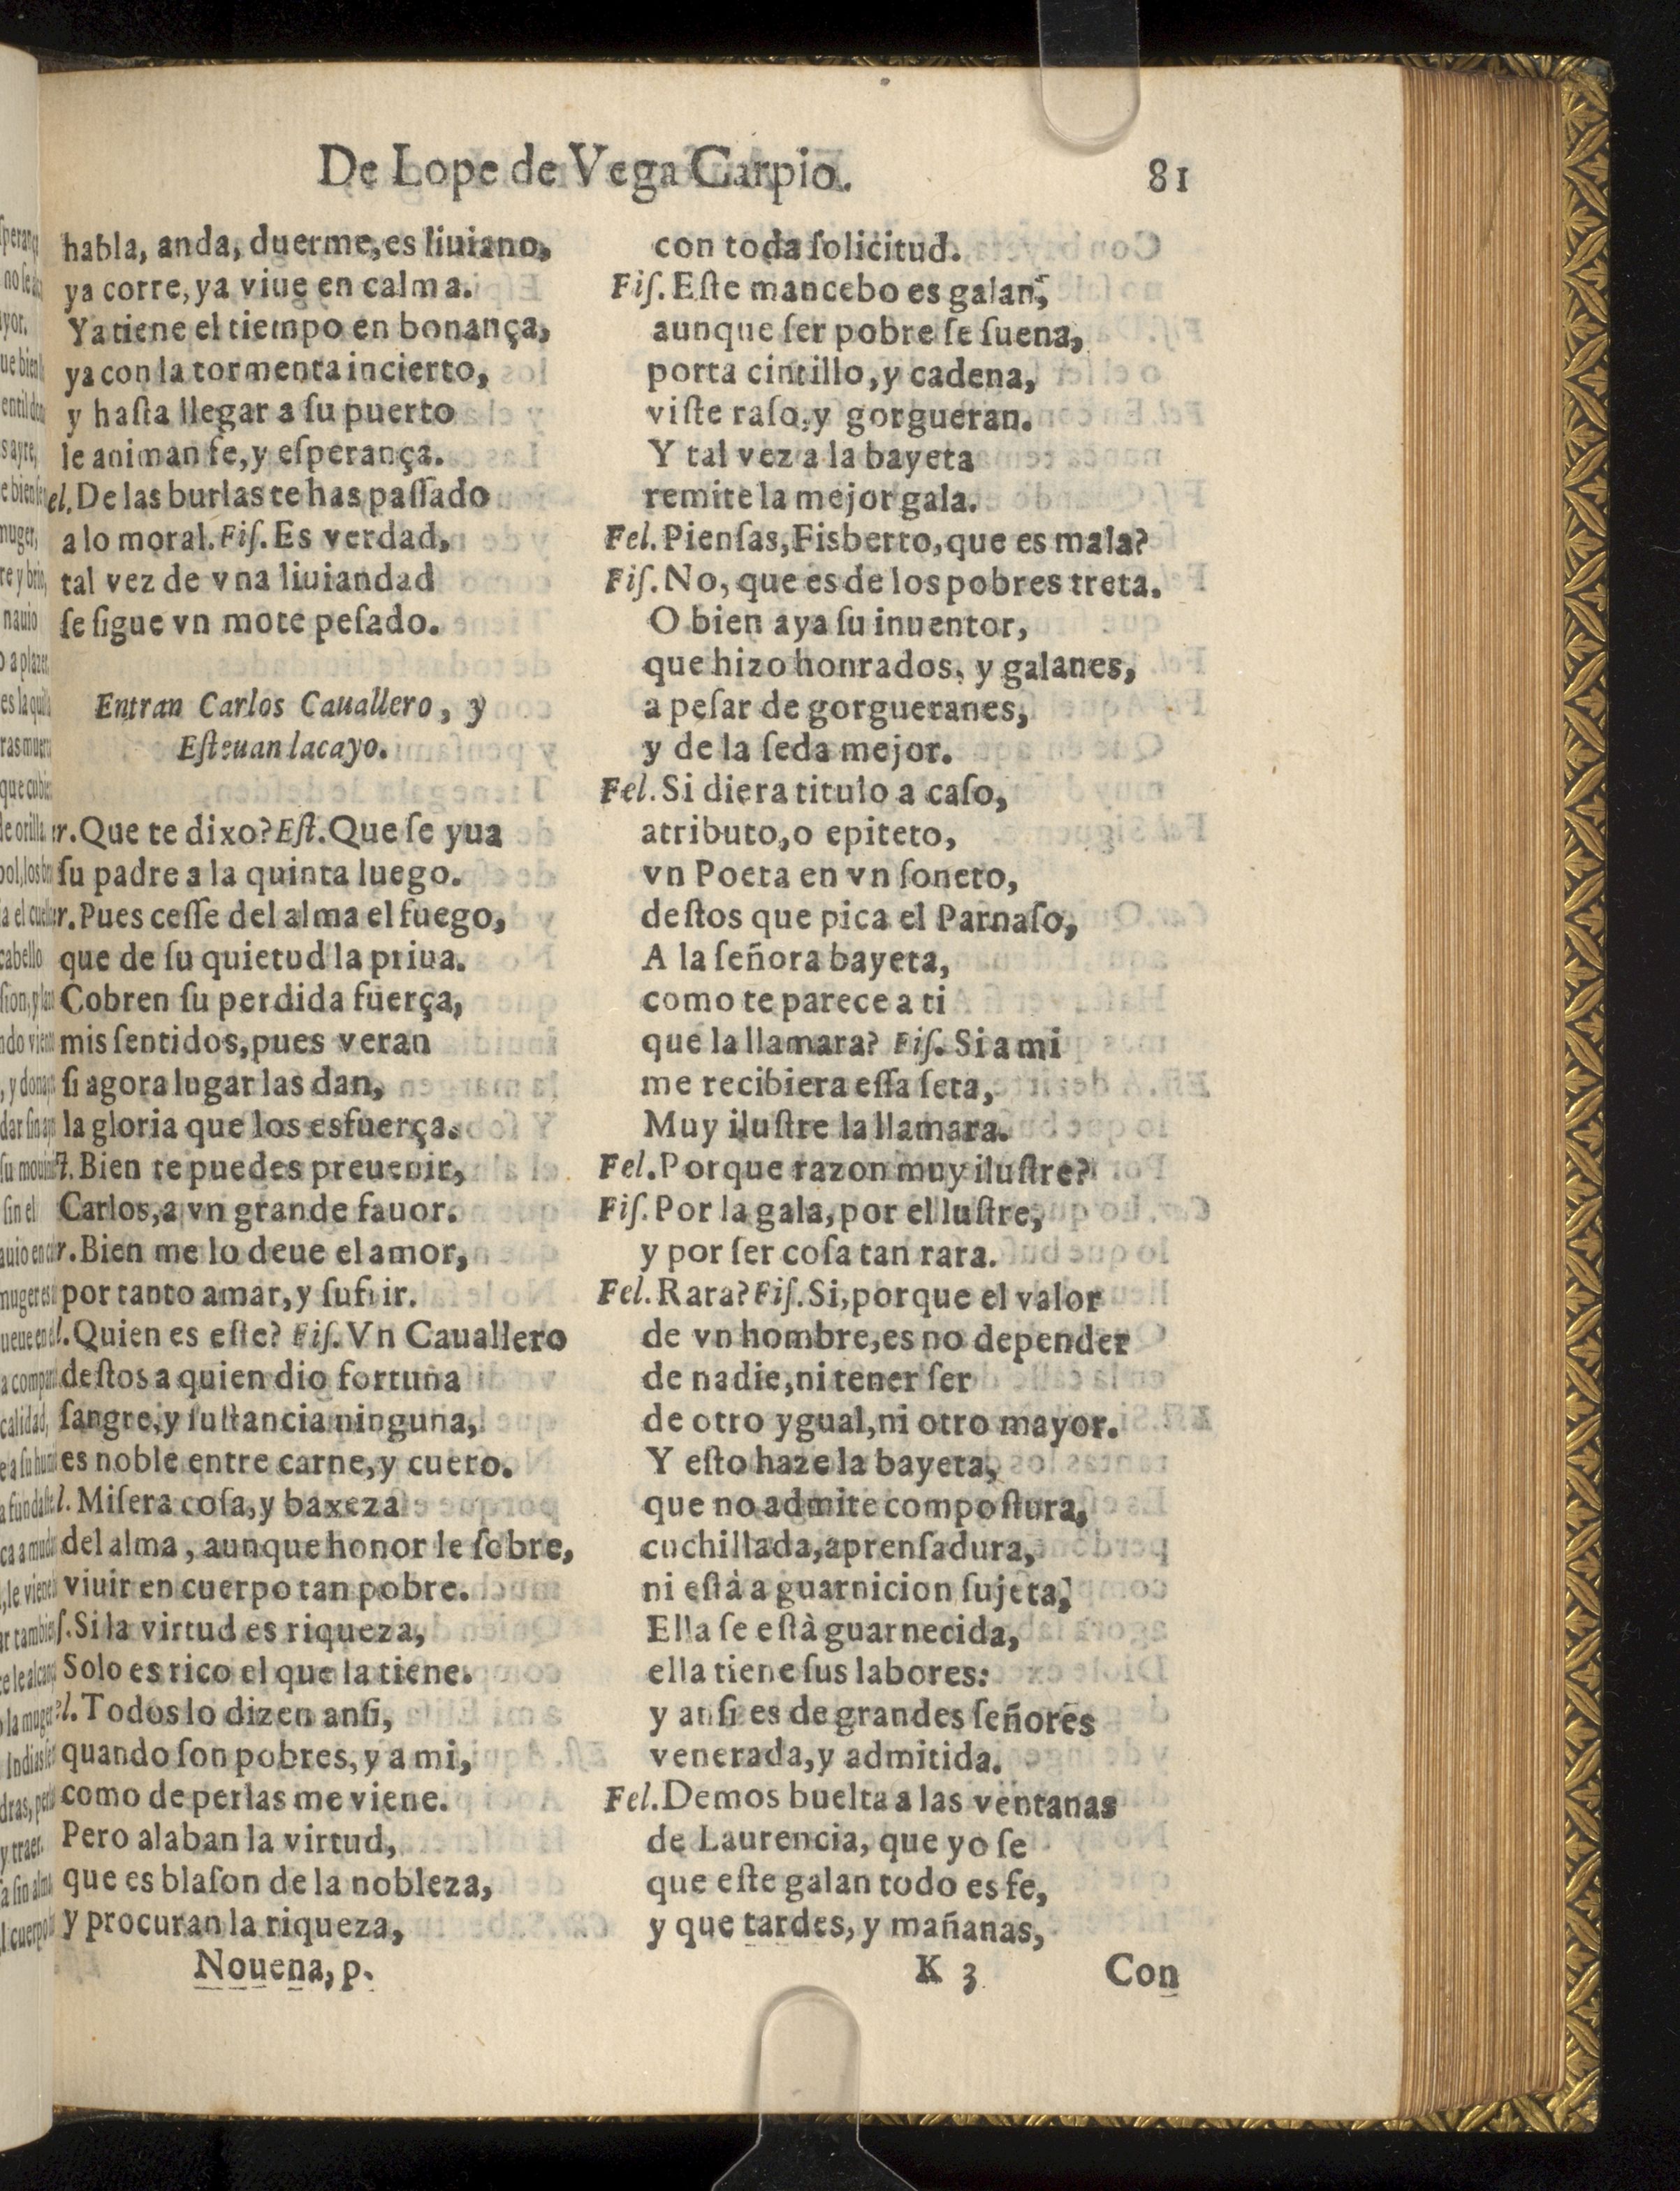 De Lope de Vega Carpio. 81
habla, anda, duerme, es liuiano,
ya corre, ya viue en calma.
Ya tiene el tiempo en bonança,
ya con la tormenta incierto,
y haſta llegar a ſu puerto
le animan fe, y eſperança.
el. De las burlas te has paſſado
a lo moral. Fiſ. Es verdad,
tal vez de vna liuiandad
ſe ſigue vn mote peſado.
Entran Carlos Cauallero, y
Eſteuan lacayo.
r. Que te dixo? Eſt. Que ſe yua
ſu padre a la quinta luego.
r. Pues ceſſe del alma el fuego,
que de ſu quietud la priua.
Cobren ſu perdida fuerça,
mis ſentidos, pues veran
ſi agora lugar las dan,
la gloria que los esfuerça.
ſt. Bien te puedes preuenir,
Carlos, a vn grande fauor.
r. Bien me lo deue el amor,
por tanto amar, y ſufrir.
l. Quien es eſte? Fiſ. Vn Cauallero
deſtos a quien dio fortuna
ſangre, y ſuſtancia ninguna,
es noble entre carne, y cuero.
l. Miſera coſa, y baxeza
del alma, aunque honor le ſobre,
viuir en cuerpo tan pobre.
ſ. Si la virtud es riqueza,
Solo es rico el que la tiene.
l. Todos lo dizen anſi,
quando ſon pobres, y a mi,
como de perlas me viene.
Pero alaban la virtud,
que es blaſon de la nobleza,
y procuran la riqueza,
con toda ſolicitud.
Fiſ. Eſte mancebo es galan,
aunque ſer pobre ſe ſuena,
porta cintillo, y cadena,
viſte raſo, y gorgueran.
Y tal vez a la bayeta
remite la mejor gala.
Fel. Pienſas, Fisberto, que es mala?
Fiſ. No, que es de los pobres treta.
O bien aya ſu inuentor,
que hizo honrados, y galanes,
a peſar de gorgueranes,
y de la ſeda mejor.
Fel. Si diera titulo a caſo,
atributo, o epiteto,
vn Poeta en vn ſoneto,
deſtos que pica el Parnaſo,
A la ſeñora bayeta,
como te parece a ti
que la llamara? Fiſ. Si a mi
me recibiera eſſa ſeta,
Muy iluſtre la llamara.
Fel. Porque razon muy iluſtre?
Fiſ. Por la gala, por el luſtre,
y por ſer coſa tan rara.
Fel. Rara? Fiſ. Si, porque el valor
de vn hombre, es no depender
de nadie, ni tener ſer
de otro ygual, ni otro mayor.
Y eſto haze la bayeta,
que no admite compoſtura,
cuchillada, aprenſadura,
ni eſtà a guarnicion ſujeta,
Ella ſe eſtà guarnecida,
ella tiene ſus labores:
y anſi es de grandes ſeñores
venerada, y admitida.
Fel. Demos buelta a las ventanas
de Laurencia, que yo ſe
que eſte galan todo es fe,
y que tardes, y mañanas,
Nouena, p. K 3 Con